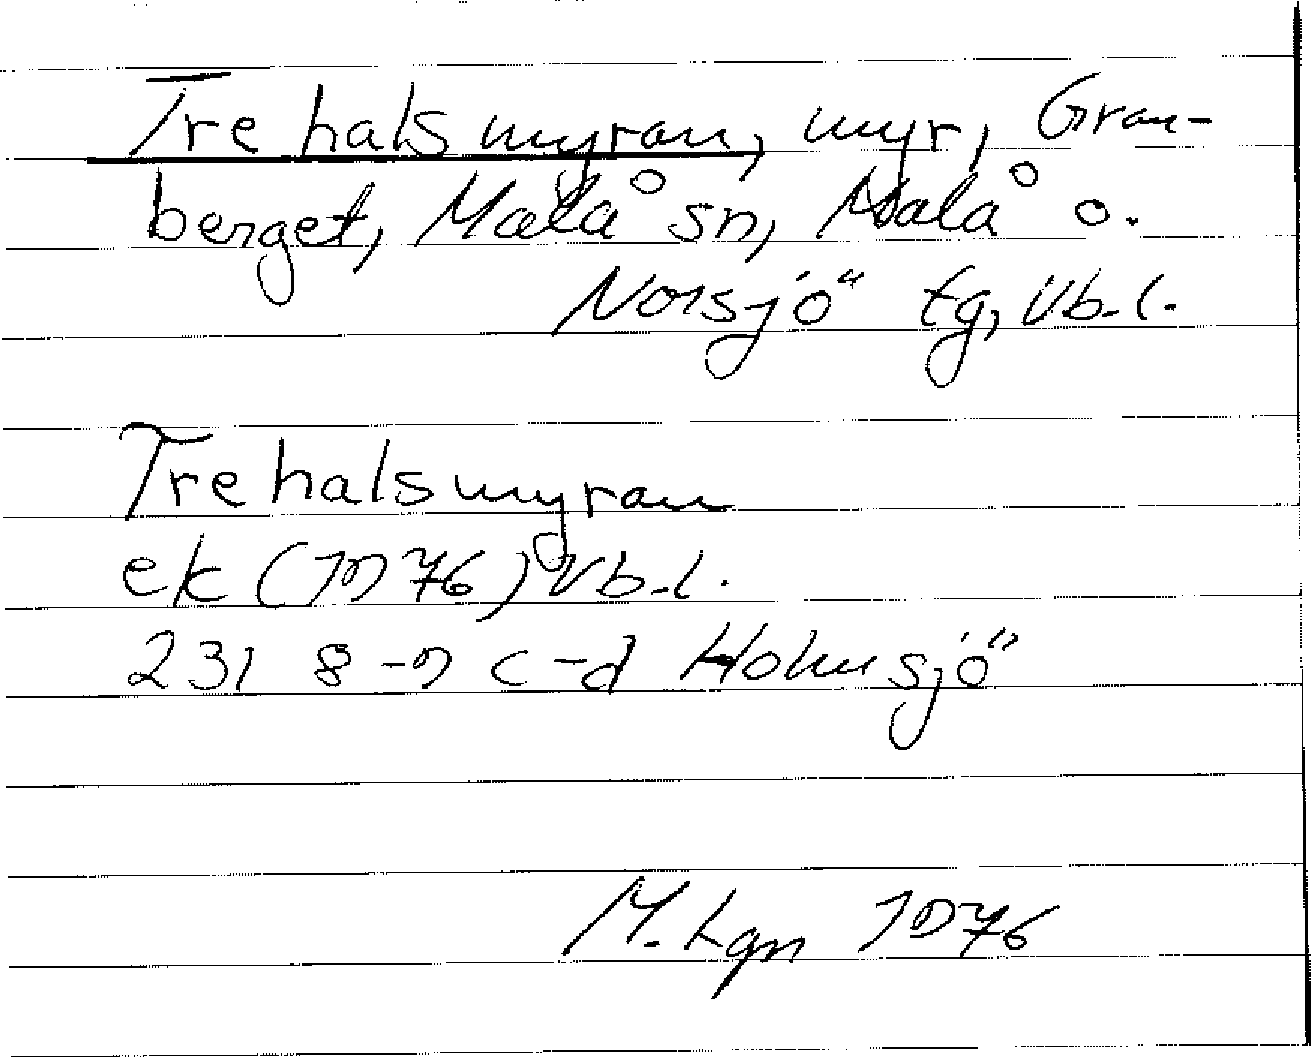 Trehalsmyran, myr, Gran-
berget, Malå sn, Malå o.
Norsjö tg, Vb.l.
Trehalsmyran
ek (1976) Vb.l.
231 8-9 c-d Holmsjö
M. Lgn 1976